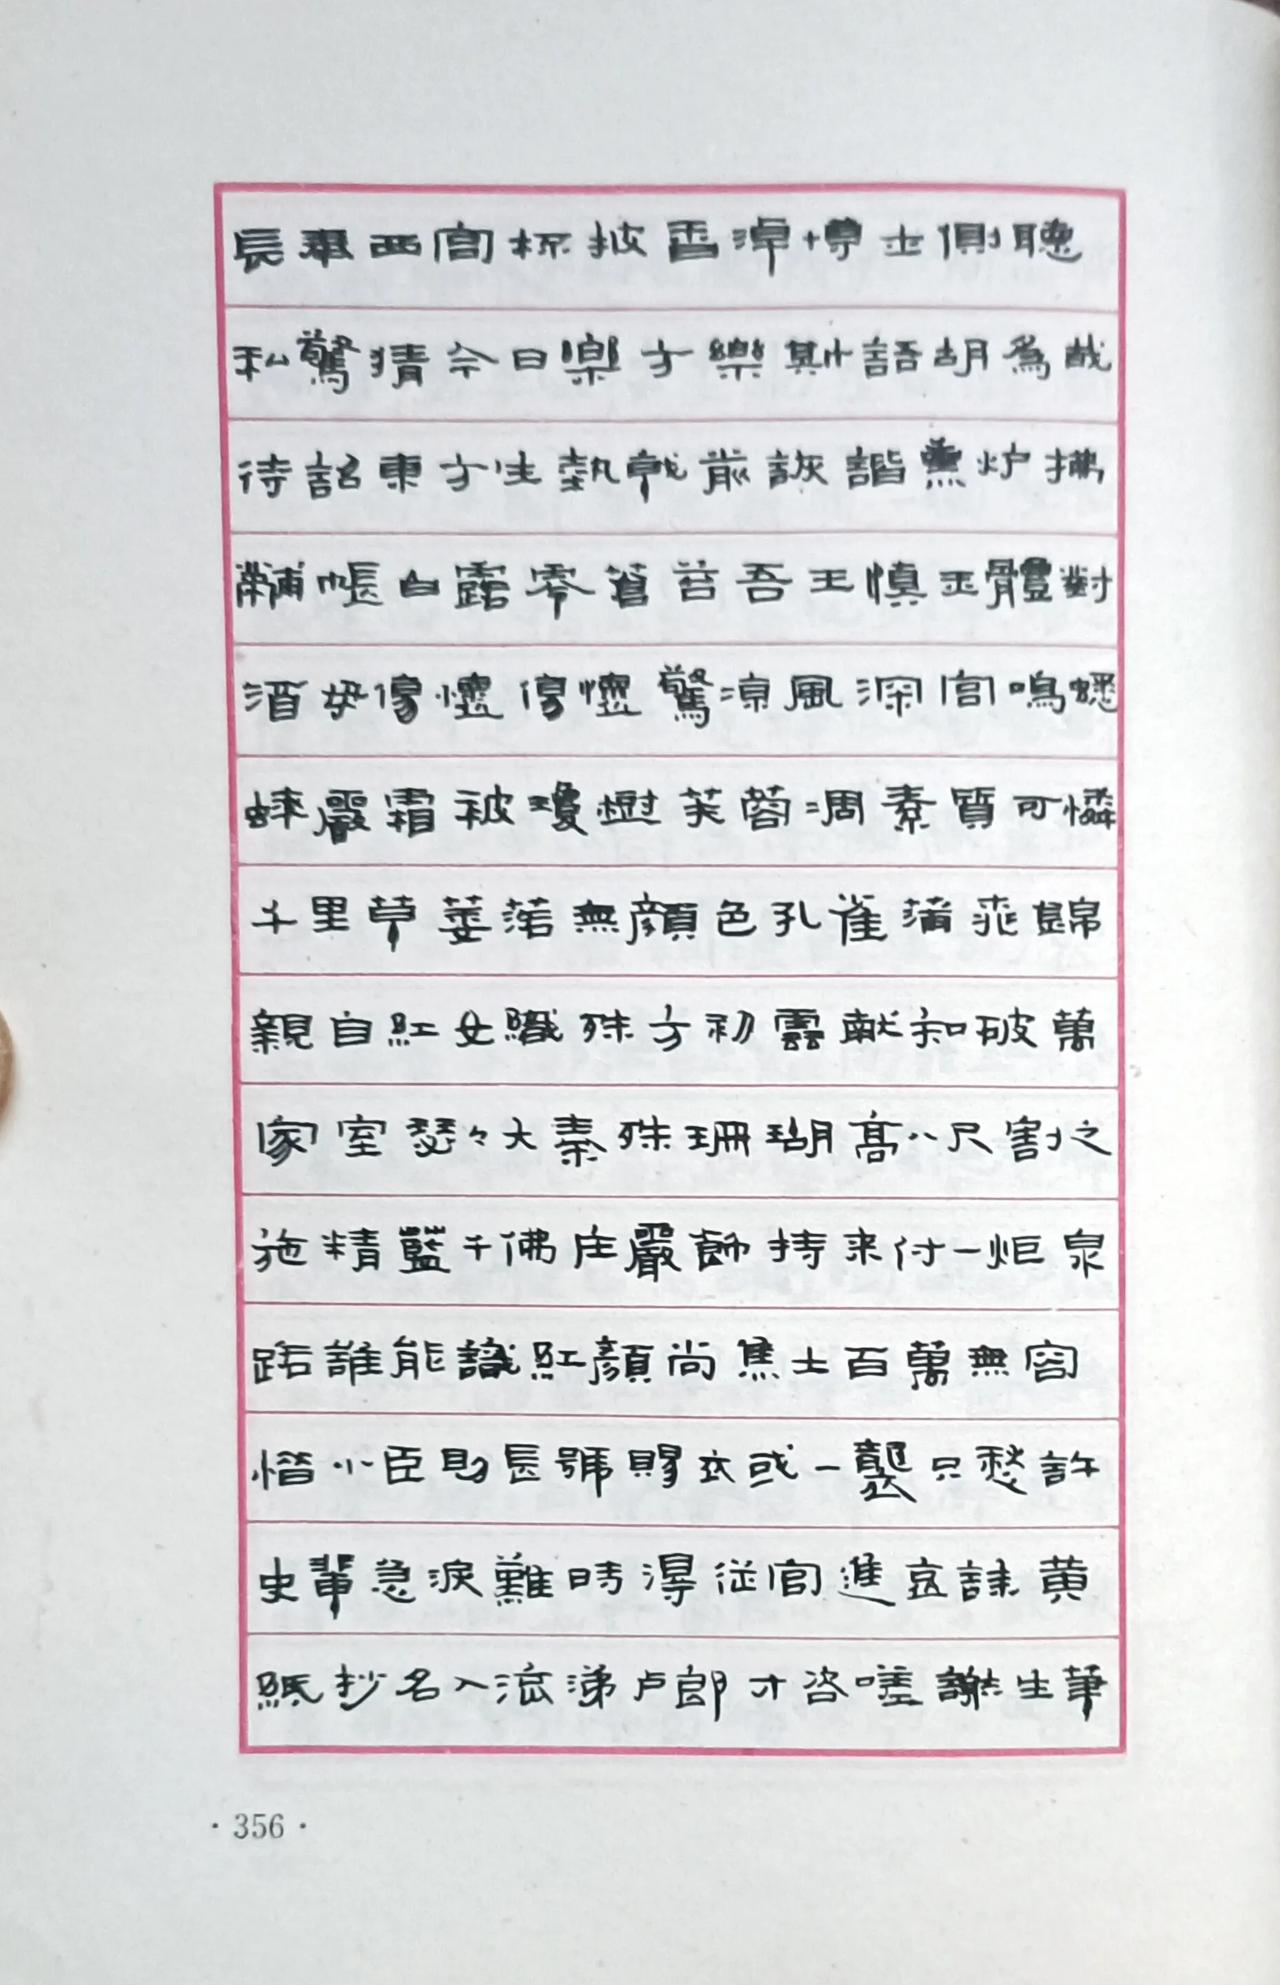 長奉西宮杯披香淖博士側聽
私驚猜今日樂方樂斯語胡為哉
待詔東方生執戟前詼諧熏炉拂
黼帳白露零蒼苔吾王慎玉體對
酒毋傷懷傷懷驚涼風深宮鳴蟋
蟀嚴霜被瓊樹芙蓉凋素質可憐
千里草萎落無顏色孔雀蒲桃錦
親自紅女織殊方初雲獻知破萬
家室瑟々大秦珠珊瑚高八尺割之
施精藍千佛庄嚴飾持来付一炬泉
路誰能識紅顏尚焦土百萬無容
惜小臣助長號賜衣或一襲只愁許
史輩急淚難時得従官進哀誄黃
紙抄名入流涕卢郎才咨嗟謝生筆
·356·